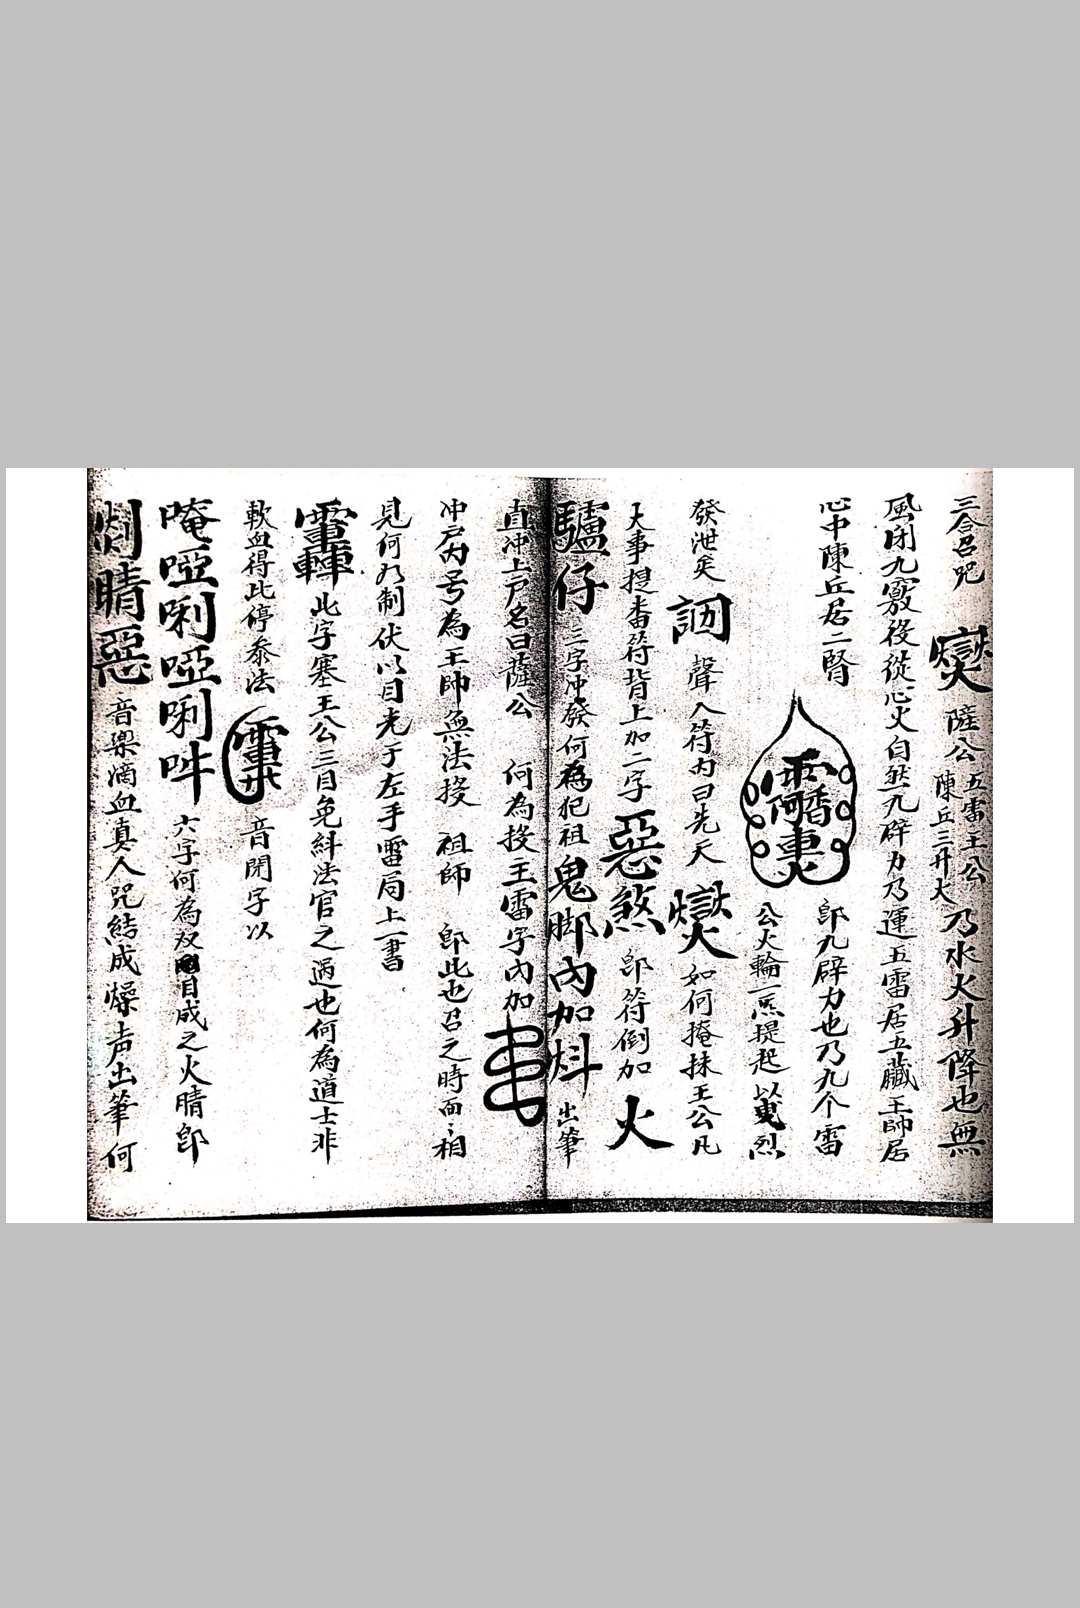 三合召咒 薩公五雷王公陳丘三升大乃水火升降也無
風閉九竅後從心火自然九辟力乃運五雷居五臟王帥居
心中陳丘居二腎 卽九辟力也乃九个雷
公火輪一炁提起以 烈
發泄矣 聲入符內曰先天 如何掩抹王公凡
大事提 符背上加二字惡煞 卽符倒加 火
驢仔三字冲發何為犯祖鬼脚內加 出筆
直冲上戸名曰薩公 何為投主雷字內加
冲戸內号為王帥無法投 祖師 卽此也召之時面々相
見何為制伏以目光于左手雷局上一書
此字塞王公三目免糾法官之過也何為道士非
軟血得此停 法 音開字以
唵啞唎啞唎吽六字何為双 目成之火睛卽
睛惡音梁滴血真人咒結成燥声出筆何